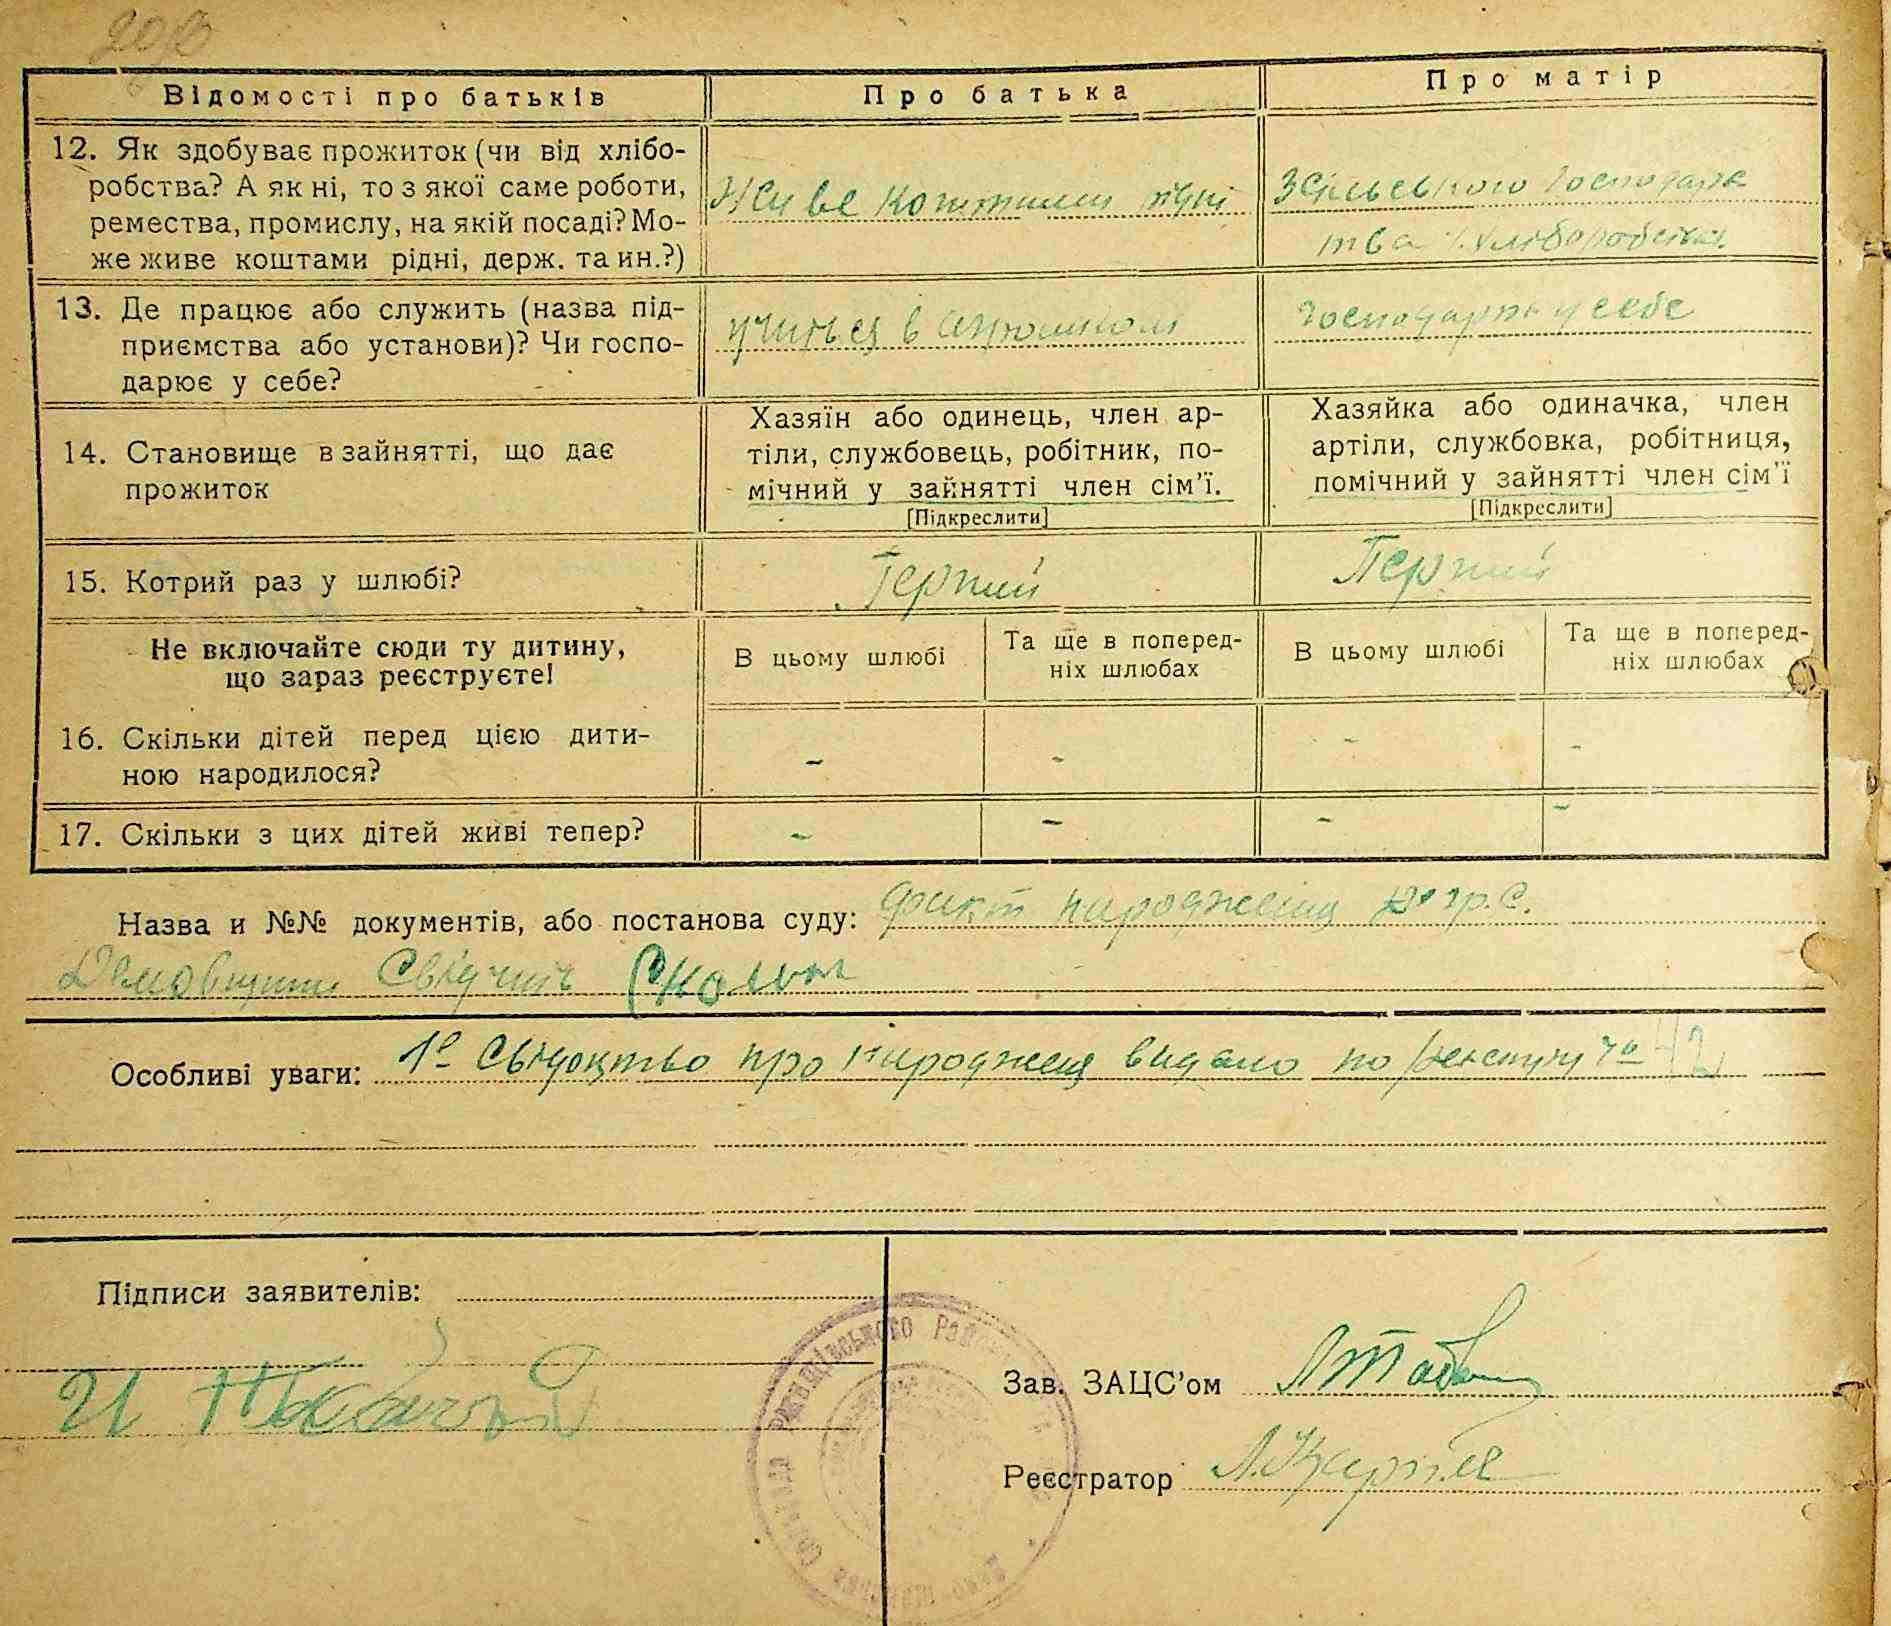 Відомості про батьків
Про батька
Про матір
12. Як здобуває прожиток (чи від хлібо-
робства? А як ні, то з якої саме роботи,
ремества, промислу, на якій посаді? Мо-
же живе коштами рідні, держ. та ин.?)
Живе коштами рідні
З Сільського господарс
тва
13. Де працює або служить (назва під-
приємства або установи)? Чи госпо-
дарює у себе?
учиться в
господарює у себе
14. Становище в зайнятті, що дає
прожиток
Хазяїн або одинець, член ар-
тіли, службовець, робітник, по-
мічний у зайнятті член сім'ї.
[Підкреслити]
Хазяйка або одиначка, член
артіли, службовка, робітниця,
помічний у зайнятті член сім'ї
[Підкреслити]
15. Котрий раз у шлюбі?
Перший
Перший
Не включайте сюди ту дитину,
що зараз реєструєте!
В цьому шлюбі
Та ще в поперед-
ніх шлюбах
В цьому шлюбі
Та ще в поперед-
ніх шлюбах
16. Скільки дітей перед цією дити-
ною народилося?
-
-
-
-
17. Скільки з цих дітей живі тепер?
-
-
-
-
Назва и №№ документів, або постанова суду: факт народження гр. С.
Свідчить
Особливі уваги: 1º Свідоцтво про народження видано по
Підписи заявителів:
Зав. ЗАЦС'ом
Реєстратор